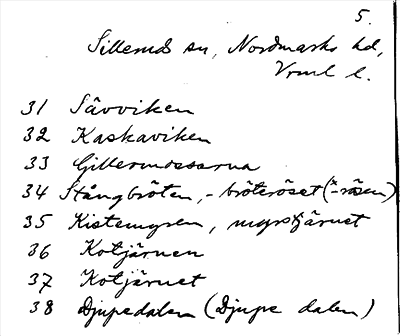 5.
Sillerud sn, Nordmarks hd,
Vrml l.
31 Sävviken
32 Kaskaviken
33 Gillermossarna
34 Stångbröten, - bröteröset (-rösen)
35 Kistemyren, myrstjärnet
36 Kotjärnen
37 Kotjärnet
38 Djupedalen (Djupe dalen)